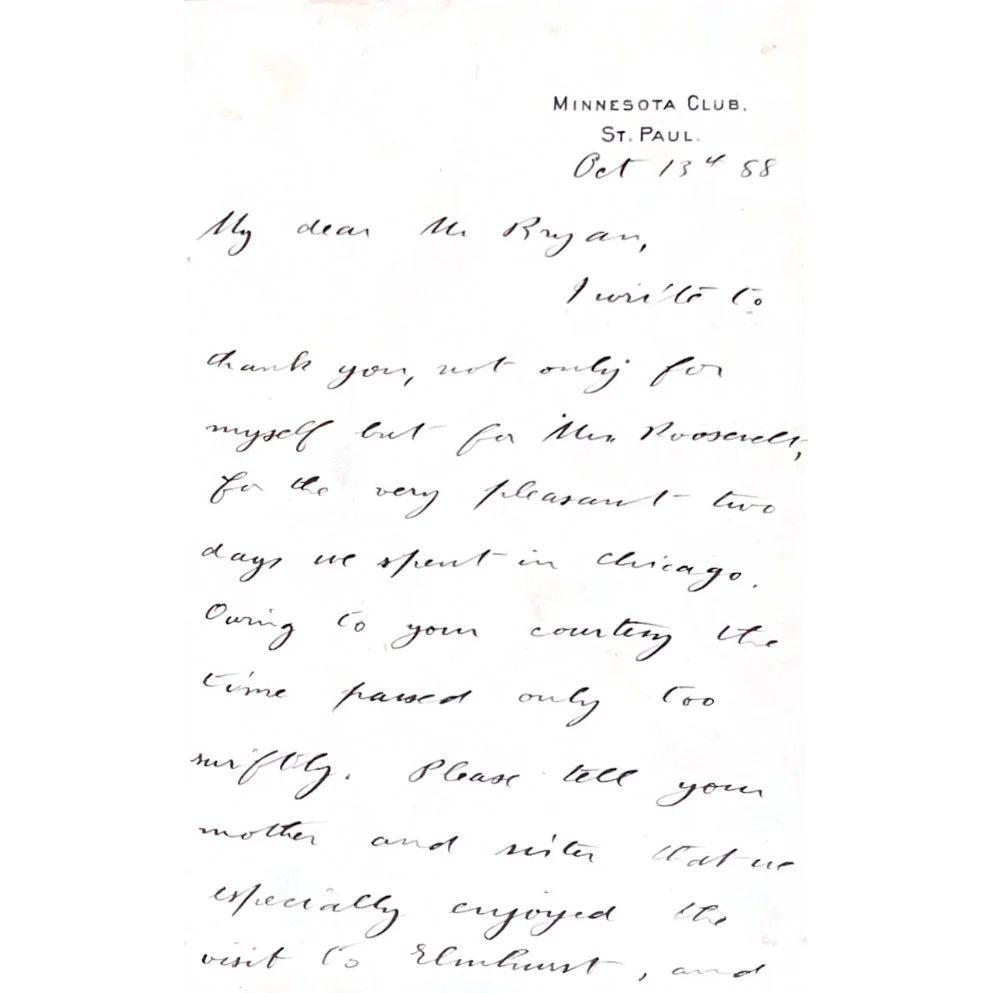 MINNESOTA CLUB.
ST. PAUL.
Oct 13th 88
My dear Mr Bryan,
I write to
thank you, not only for
myself but for Mrs Roosevelt,
for the very pleasant two
days we spent in Chicago.
Owing to your courtesy the
time passed only too
swiftly. Please tell your
mother and sister that we
especially enjoyed the
visit to Elmhurst, and